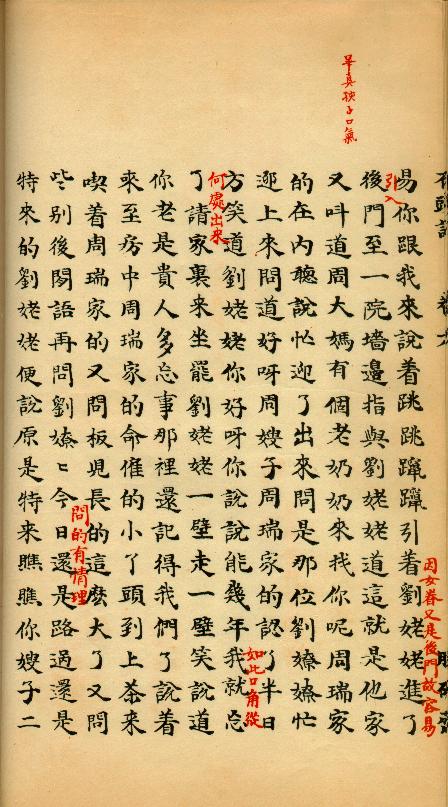 畢真孩子口氣
易你跟我來說着跳跳躥躥引着劉姥姥進了
引入
因女眷又是後門故容易
後門至一院墻邉指與劉姥姥道這就是他家
又呌道周大媽有個老奶奶來找你呢周瑞家
的在内聽說忙迎了出來問是那位劉嫽嫽忙
迎上來問道好呀周嫂子周瑞家的認了半日
方笑道劉姥姥你好呀你說說能幾年我就忘
如此口角從
何處出来
了請家裏来坐罷劉姥姥一壁走一壁笑說道
你老是貴人多忘事那裡還記得我們了說着
來至房中周瑞家的命僱的小了頭到上茶来
喫着周瑞家的又問板児長的這麽大了又問
問的有情理
些别後閑話再問劉嫽〻今日還是路過還是
特来的劉姥姥便說原是特来瞧瞧你嫂子二